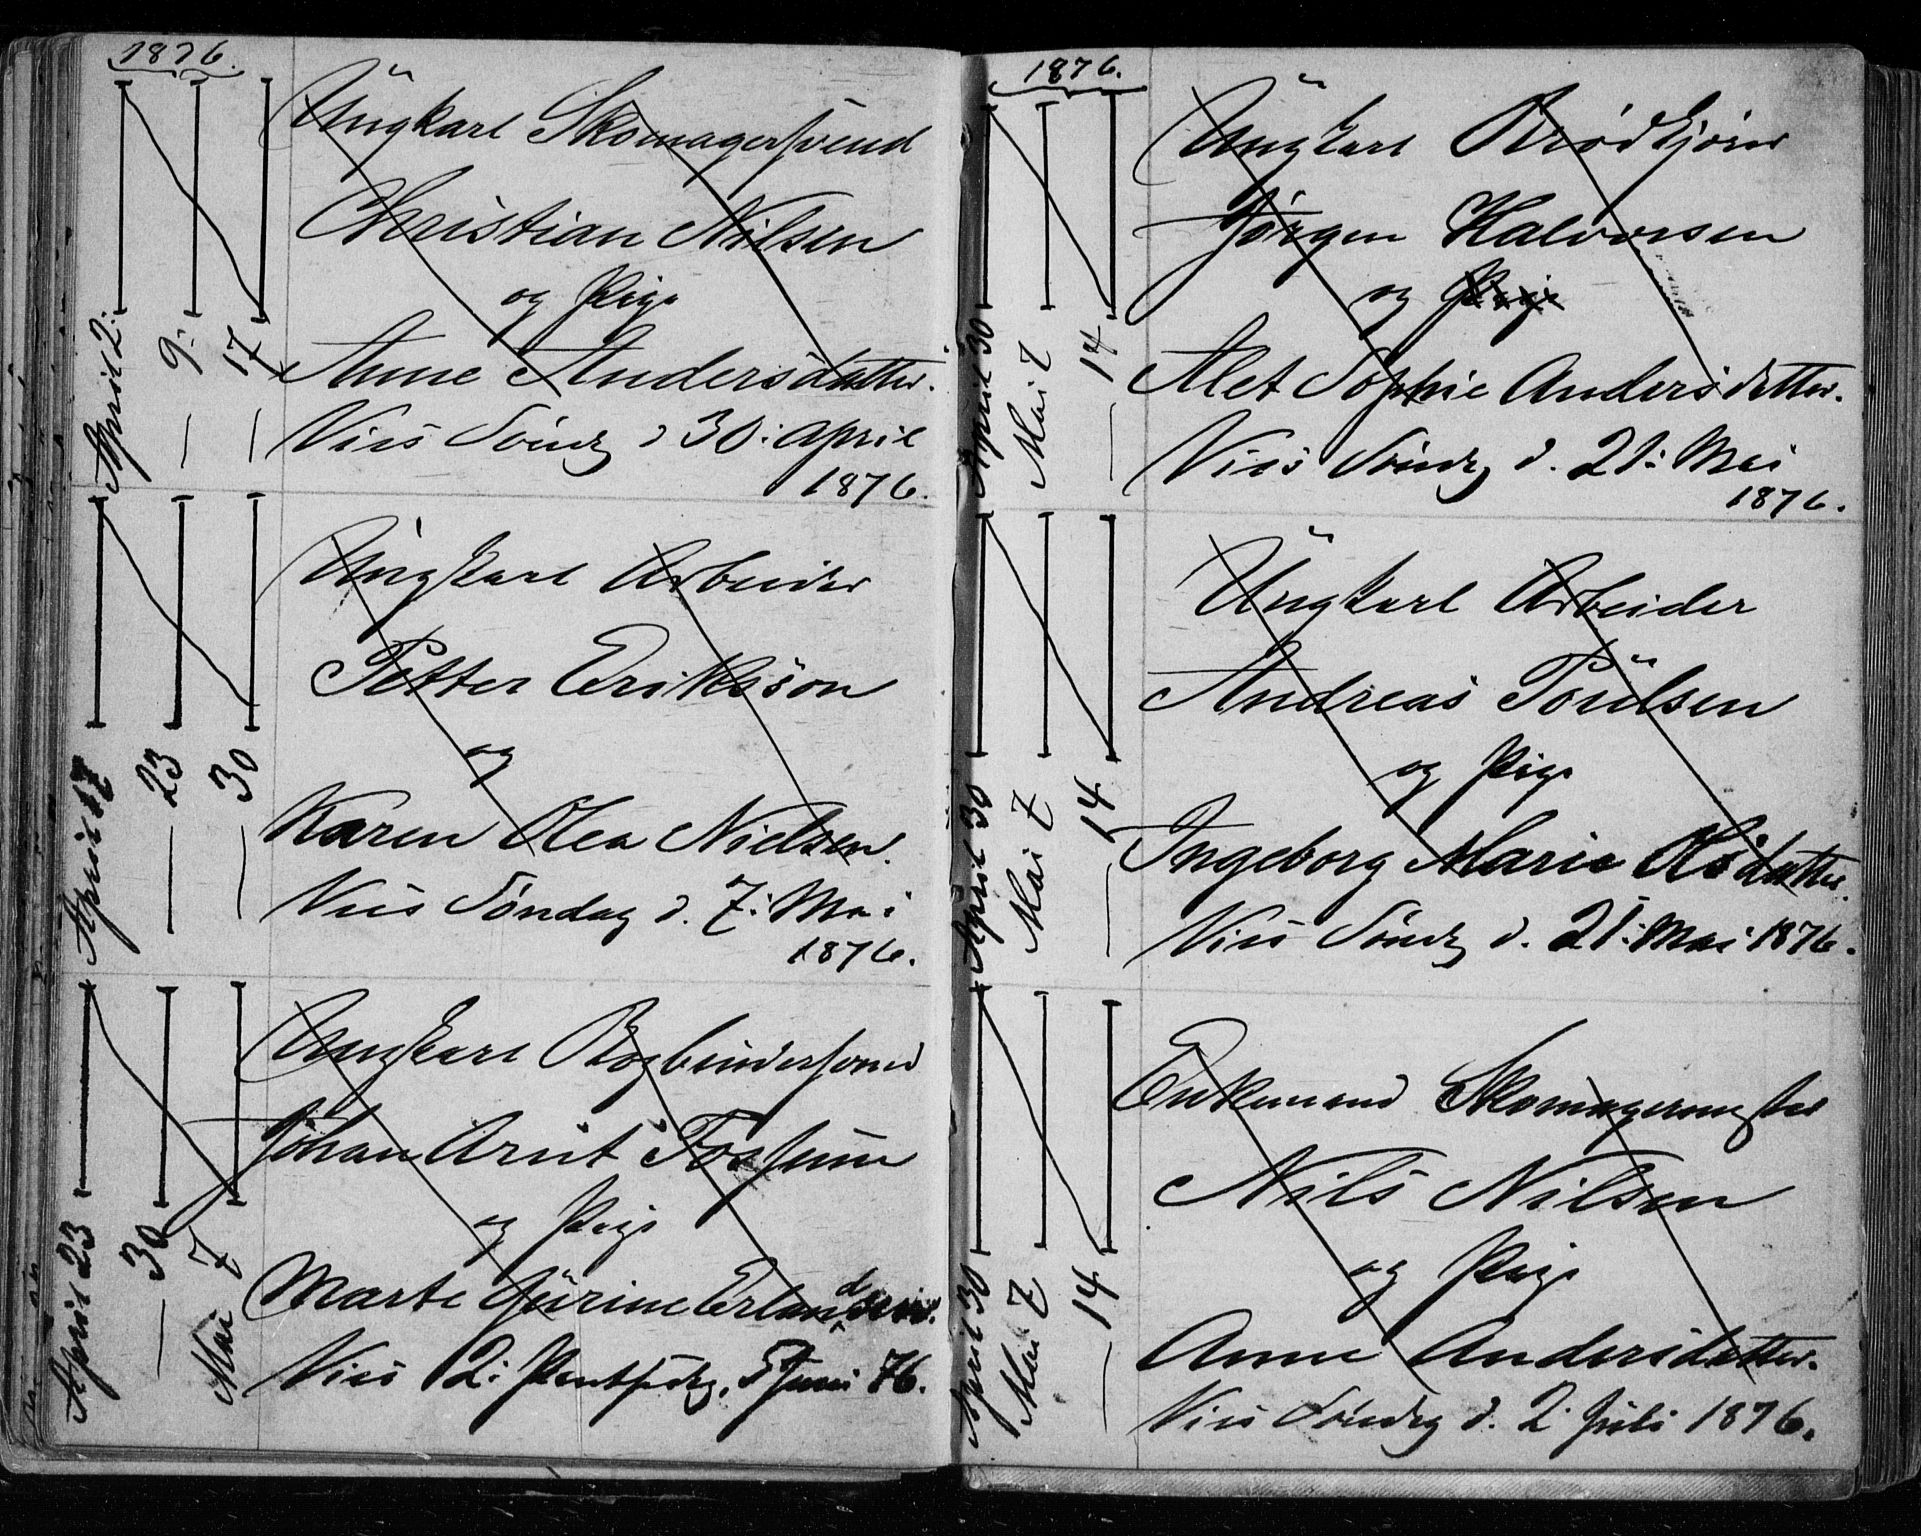 1876.
April 2.
— 9.
— 17
Ungkarl Skomagersvend
Christian Nilsen
og Pige
Anne Andersdatter.
Vies Søndg d 30: April
1876.
April 17
— 23
— 30
Ungkarl Arbeider
Petter Eriksson
og
Karen Olea Nielsen.
Vies Søndag d. 7: Mai
1876.
April 23
— 30
Mai 7
Ungkarl Bogbindersvend
Johan Arnt Fossum
og Pige
Marte Jürine Erlandsen.
Vies 2: Pintsedg, 5 Juni 76.
1876.
April 30
Mai 7
— 14
Ungkarl Brødkjører
Jørgen Halvorsen
og Pige
Alet Sophie Andersdatter.
Vies Søndg d. 21: Mai
1876.
April 30
Mai 7
— 14
Ungkarl Arbeider
Andreas Poulsen
og Pige
Ingeborg Marie Olsdatter.
Vies Søndg d. 21: Mai 1876.
April 30
Mai 7
— 14
Enkemand Skomagermester
Nils Nilsen
og Pige
Anne Andersdatter.
Vies Søndg d. 2 Juli 1876.